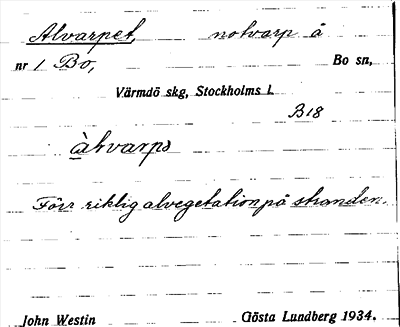 Alvarpet, notvarp å
nr 1 Bo, Bo sn,
Värmdö skg, Stockholms l.
B18
àlvarpə
Förr riklig alvegetation på stranden.
John Westin Gösta Lundberg 1934.